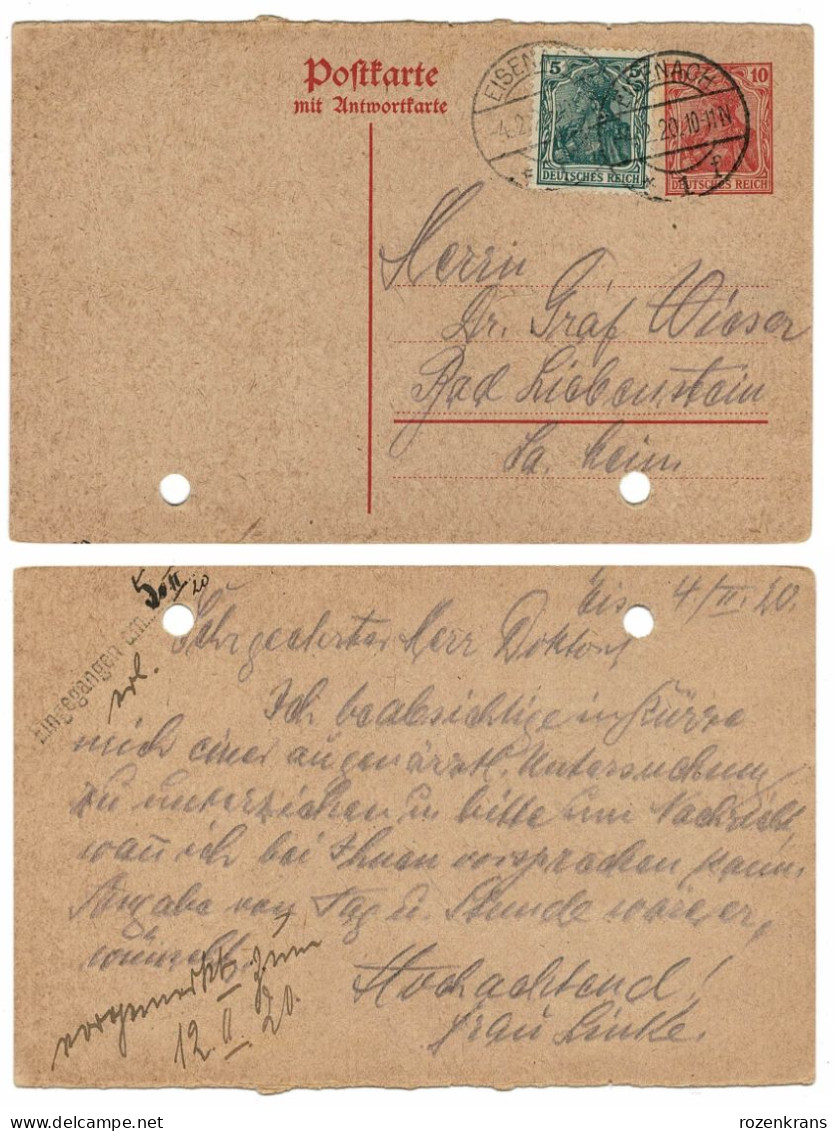 Postkarte
mit Antwortkarte
EISENACH
4.2.
5 5
DEUTSCHES REICH
EISENACH
2.20.10-11N
* 1 f
10
DEUTSCHES REICH
Herrn
Dr. Graf Wieser
Bad Liebenstein
Sa. Mein
5. II 20
Eingegangen am
erl.
Eis. 4/II. 20.
Sehr geehrter Herr Doktor!
Ich beabsichtige in Kürze
mich einer augenärztl. Untersuchung
zu unterziehen u bitte um Nachricht,
wan̄ ich bei Ihnen vorsprechen kann.
Angabe von Tag u. Stunde wäre er,
wünscht.
Hochachtend!
Frau Linke.
vorgemerkt zum
12. II. 20.
rozenkrans